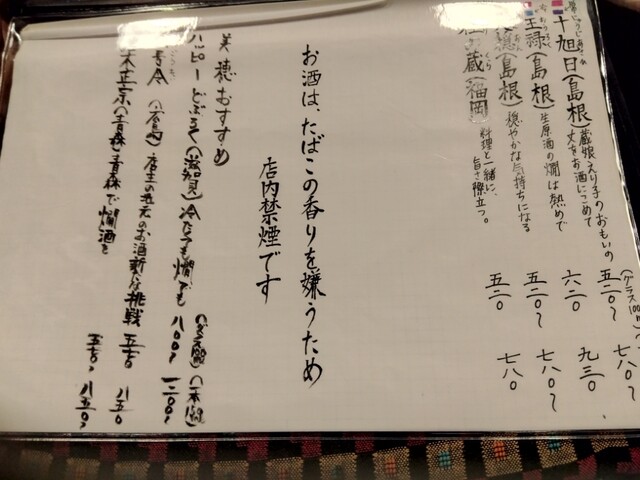 十旭日（島根）蔵娘えり子のおもいの
丈をお酒にこめて
五二〇〜 七八〇〜
王祿（島根）生原酒の燗は熱めで
六二〇 九三〇
（島根）穏やかな気持ちになる
五二〇〜 七八〇〜
蔵（福岡）料理と一緒に、
旨さ際立つ。
五二〇 七八〇
お酒は、たばこの香りを嫌うため
店内禁煙です
美穂おすすめ
ハッピーどぶろく（滋賀）冷たても燗でも
八〇〇〜 一二〇〇〜
店主の地元のお酒新たな挑戦
八五〇
正宗（青森）青森で燗酒を
八五〇〜